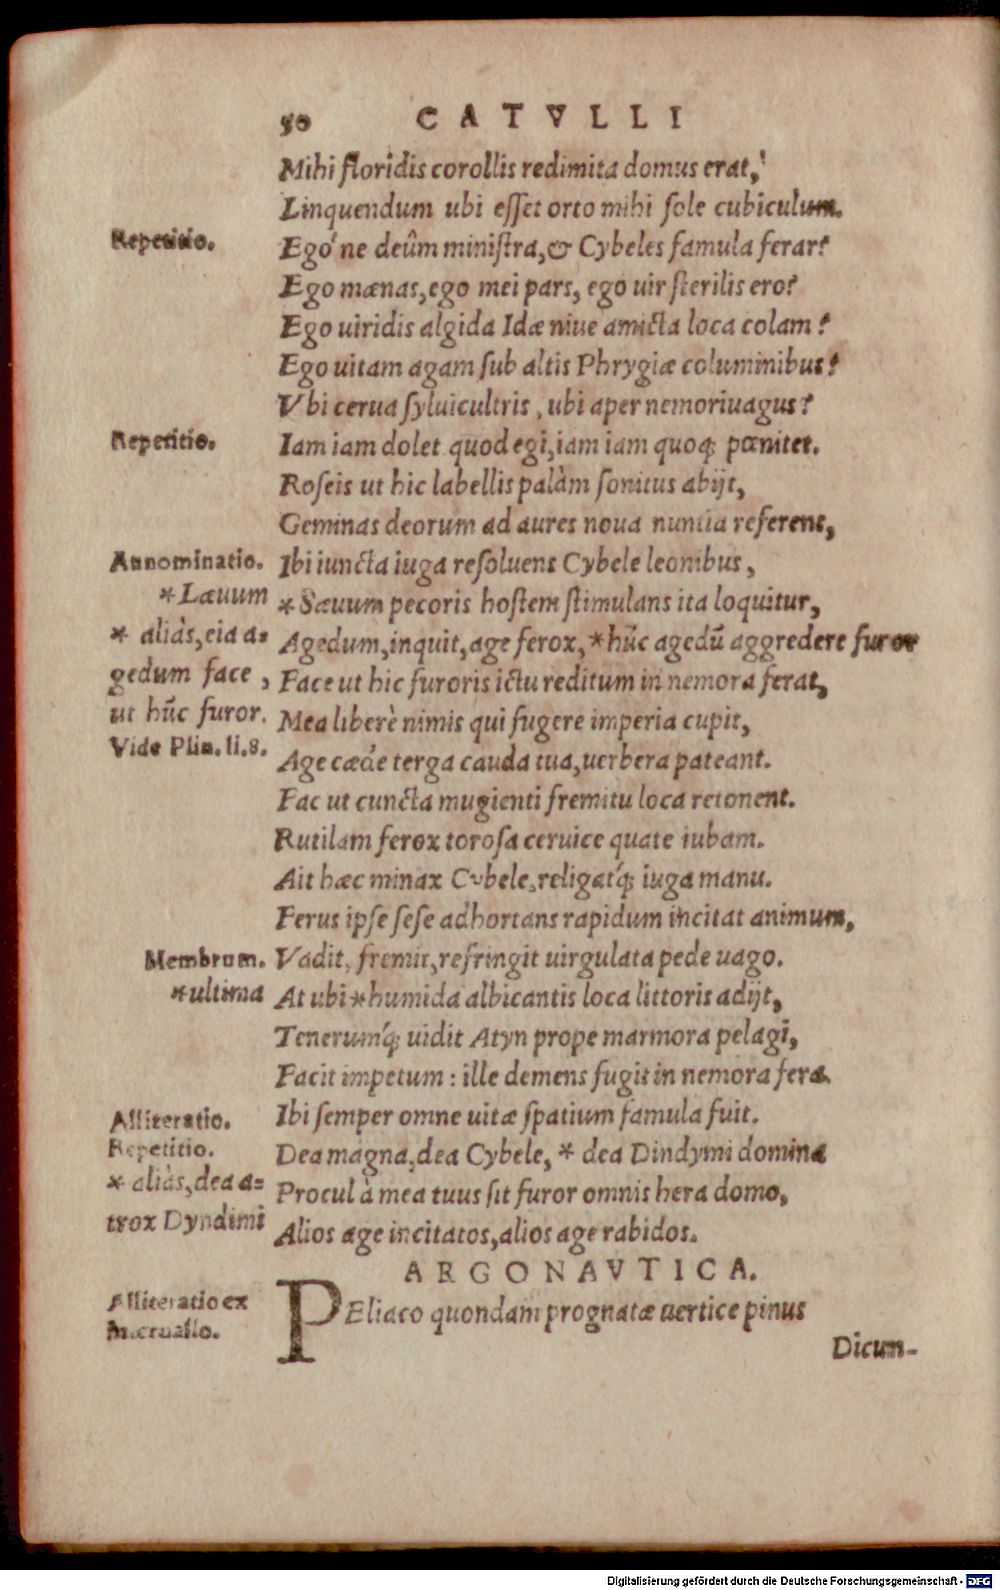 50 CATVLLI
Mihi floridis corollis redimita domus erat,
Linquendum ubi eſſet orto mihi ſole cubiculum.
Repetitio.
Ego'ne deûm miniſtra, & Cybeles famula ferar?
Ego mænas, ego mei pars, ego uir ſterilis ero?
Ego uiridis algida Idæ niue amicta loca colam?
Ego uitam agam ſub altis Phrygiæ columinibus?
Vbi cerua ſyluicultris, ubi aper nemoriuagus?
Repetitio.
Iam iam dolet quod egi, iam iam quoq; pœnitet.
Roſeis ut hic labellis palàm ſonitus abijt,
Geminas deorum ad aures noua nuntia referens,
Annominatio.
Ibi iuncta iuga reſoluens Cybele leonibus,
*Læuum
*Sæuum pecoris hoſtem ſtimulans ita loquitur,
* aliàs, eia a=
Agedum, inquit, age ferox, *hūc agedū aggredere furor
gedum face,
Face ut hic furoris ictu reditum in nemora ferat,
ut hūc furor.
Mea liberè nimis qui fugere imperia cupit,
Vide Plin. li.8.
Age cæde terga cauda tua, uerbera pateant.
Fac ut cuncta mugienti fremitu loca retonent.
Rutilam ferox toroſa ceruice quate iubam.
Ait hæc minax Cybele, religat'q; iuga manu.
Ferus ipſe ſeſe adhortans rapidum incitat animum,
Membrum.
Vadit, fremit, refringit uirgulata pede uago.
*ultima
At ubi *humida albicantis loca littoris adijt,
Tenerum'q; uidit Atyn prope marmora pelagi,
Facit impetum: ille demens fugit in nemora fera.
Ibi ſemper omne uitæ ſpatium famula fuit.
Alliteratio.
Repetitio.
Dea magna, dea Cybele, * dea Dindymi domina
* aliàs, dea a=
Procul à mea tuus ſit furor omnis hera domo,
trox Dyndimi
Alios age incitatos, alios age rabidos.
ARGONAVTICA.
Alliteratio ex
PEliaco quondam prognatæ uertice pinus
interuallo.
Dicun-
Digitalisierung gefördert durch die Deutsche Forschungsgemeinschaft - DFG